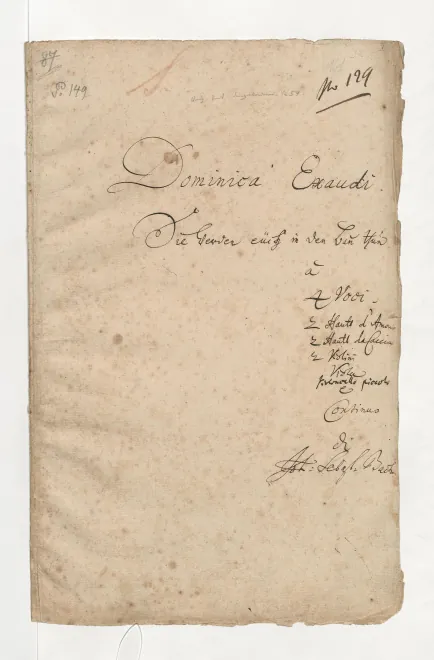 87
P. 149
No 129
Dominica Exaudi.
Sie werden euch in den Bañ thun
à
4 Voci.
2 Hautb d'Amour
2 Hautb da Caccia
2 Violini
Viola
Violoncello piccolo
e
Continuo
di
Joh: Sebast. Bach